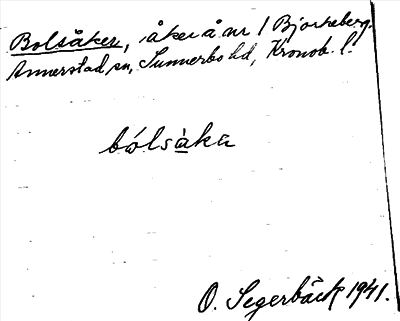 Bolsåker, åker å nr 1 Bjorkeberg,
Annerstad sn, Sunnerbo hd, Kronob. l.
bólsàka
O. Segerbäck 1941.